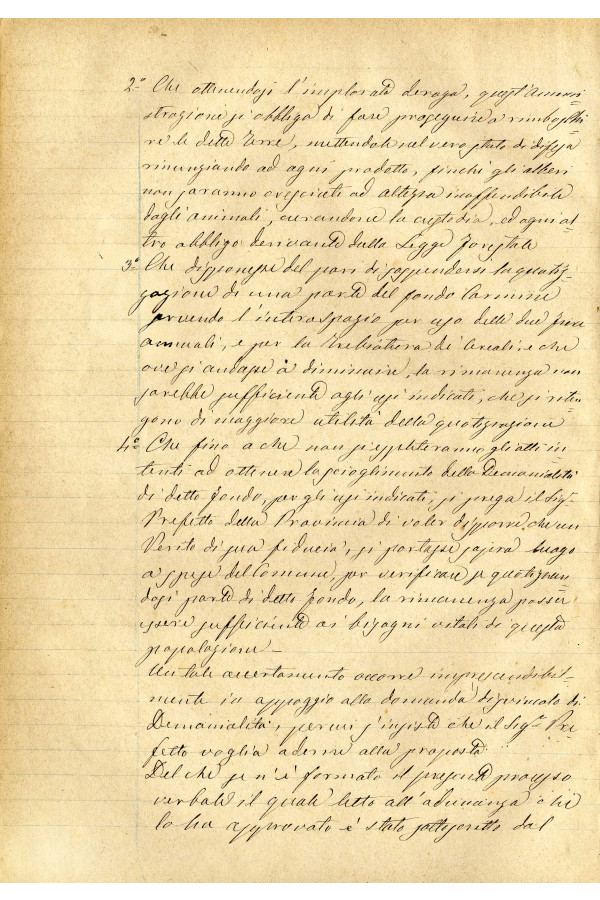 2.° Che ottenendosi l'implorata deroga, quest'Ammini=
strazione si obbliga di fare proseguire a rimboschi
re le dette Terre, mettendole nel vero stato di difesa
rinunziando ad ogni prodotto, finchè gli alberi
non saranno cresciuti ad altezza inoffendibile
dagli animali, curandone la custodia, ed ogni al=
tro obbligo derivante dalla Legge Forestale
3.° Che disponesse del pari di sospendersi la quotiz=
zazione di una parte del fondo Carmine
servendo l'interospazio per uso delle due Fiere
annuali, e per la Trebiatura dei Cereali; e che
ove si andasse a diminuire, la rimanenza non
sarebbe sufficiente agli usi indicati, che si riten
gono di maggiore utilità della quotizzazione
4.° Che fino a che non si espleteranno gli atti in=
tenti ad ottenere lo scioglimento della Demanialità
di detto fondo, per gli usi indicati, si prega il Sig.r
Prefetto della Provincia di voler disporre, che un
Perito di sua fiducia, si portasse sopra luogo
a spese del Comune, per verificare se quotizzan
dosi parte di detto fondo, la rimanenza possa
essere sufficiente ai bisogni vitali di questa
popolazione –
Un tale accertamento occorre imprescindibil=
mente in appoggio alla domanda di svincolo di
Demanialità, per cui s'insiste che il Sig.r Pre=
fetto voglia aderire alla proposta
Del che se n'è formato il presente processo
verbale il quale letto all'adunanza che
lo ha approvato è stato sottoscritto dal